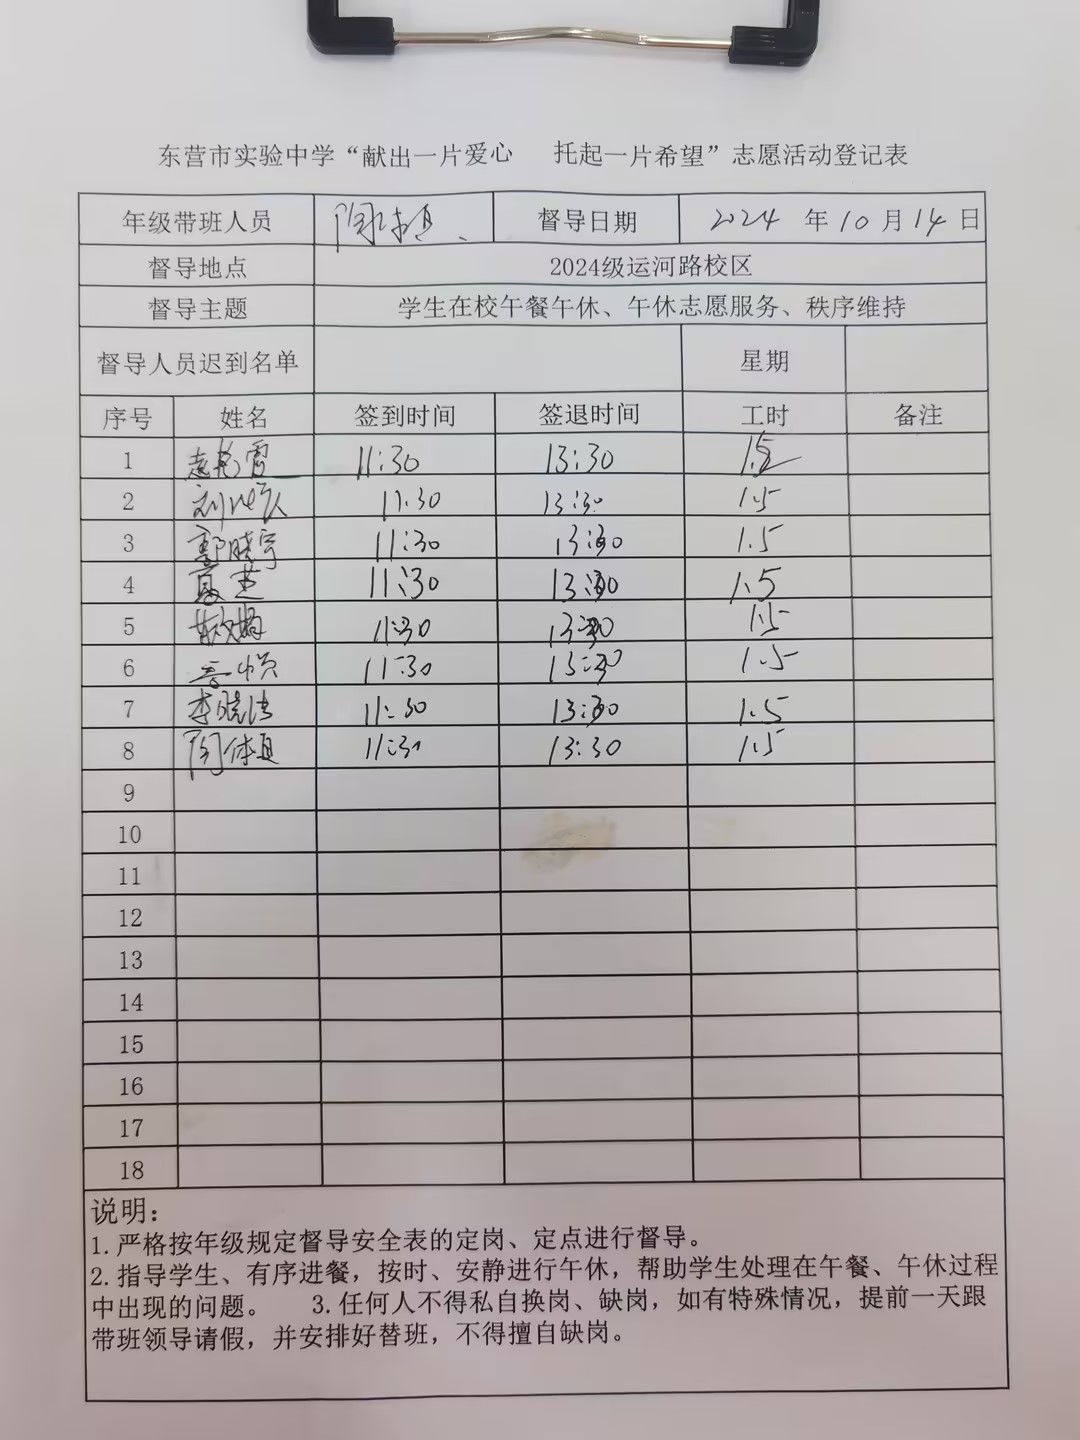 东营市实验中学“献出一片爱心 托起一片希望”志愿活动登记表
年级带班人员 督导日期 2024 年 10 月 14 日
督导地点 2024级运河路校区
督导主题 学生在校午餐午休、午休志愿服务、秩序维持
督导人员迟到名单 星期
序号 姓名 签到时间 签退时间 工时 备注
1 11:30 13:30 1.5
2 11:30 13:30 1.5
3 郭晓宇 11:30 13:30 1.5
4 11:30 13:30 1.5
5 11:30 13:30 1.5
6 11:30 13:30 1.5
7 李晓洁 11:30 13:30 1.5
8 11:30 13:30 1.5
9
10
11
12
13
14
15
16
17
18
说明：
1.严格按年级规定督导安全表的定岗、定点进行督导。
2.指导学生、有序进餐，按时、安静进行午休，帮助学生处理在午餐、午休过程
中出现的问题。 3.任何人不得私自换岗、缺岗，如有特殊情况，提前一天跟
带班领导请假，并安排好替班，不得擅自缺岗。